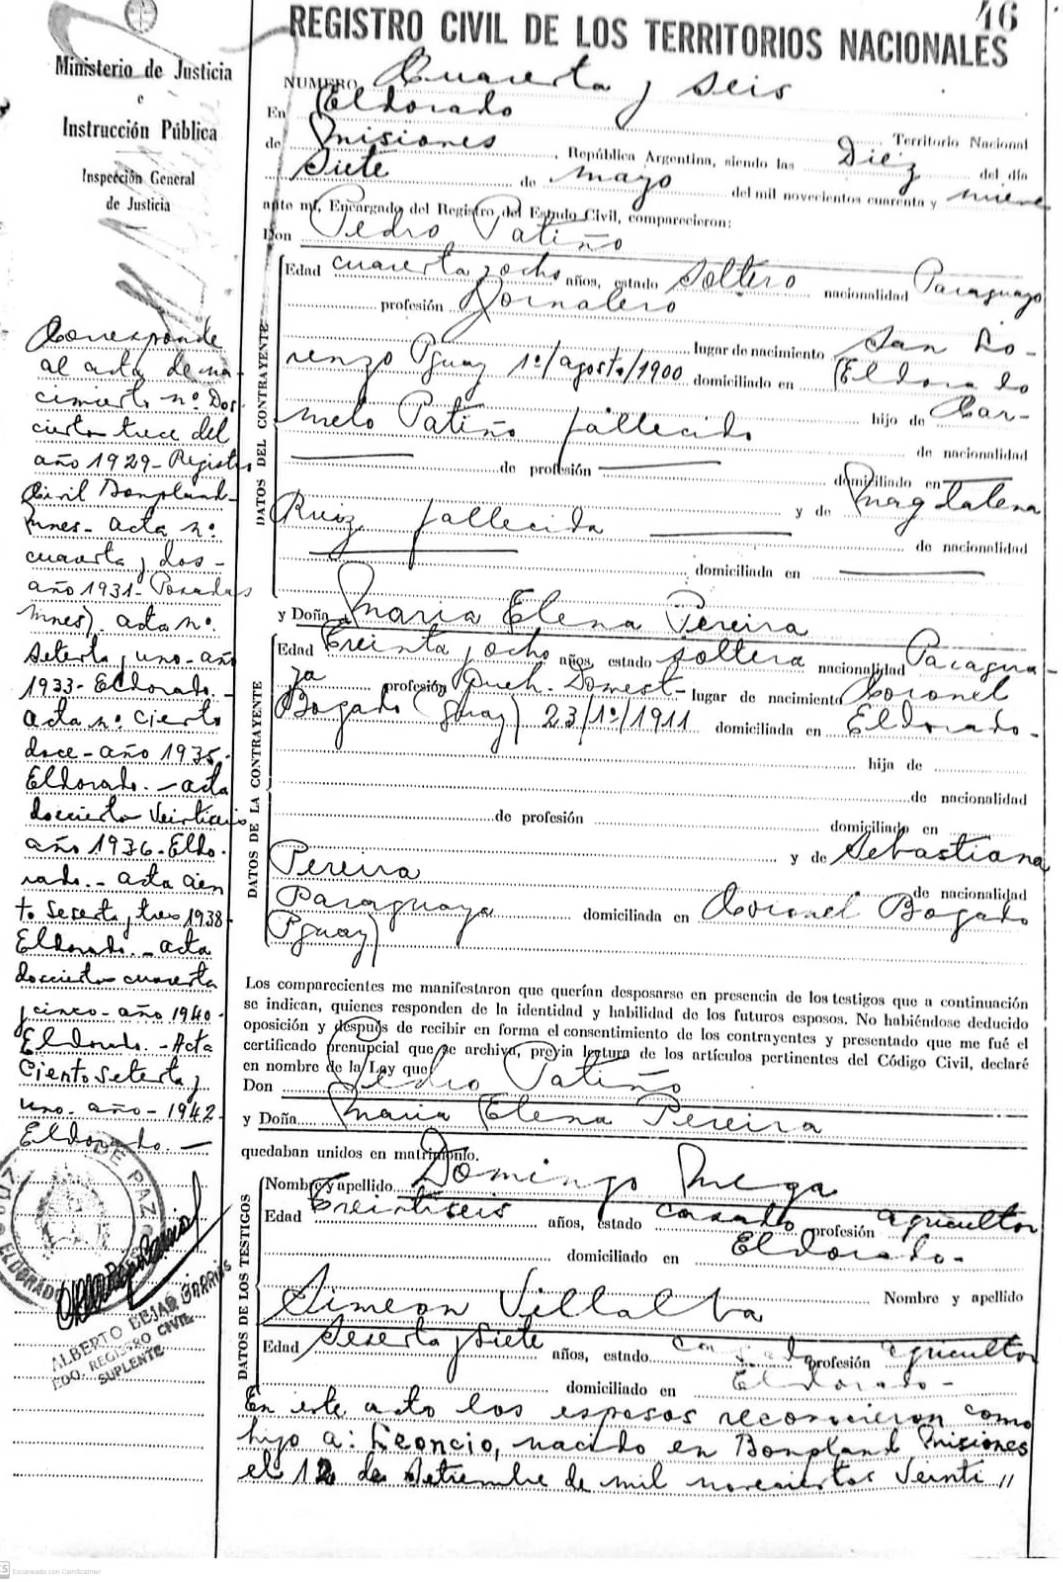 46
REGISTRO CIVIL DE LOS TERRITORIOS NACIONALES
Ministerio de Justicia
e
Instrucción Pública
Inspección General
de Justicia
NUMERO Cuarenta y seis
En Eldorado
Territorio Nacional
de Misiones, República Argentina, siendo las Diez del día
Siete de mayo del mil novecientos cuarenta y nueve
ante mí, Encargado del Registro del Estado Civil, comparecieron:
Don Pedro Patiño
DATOS DEL CONTRAYENTE
Edad cuarenta y ocho años, estado soltero nacionalidad Paraguayo
profesión Jornalero
lugar de nacimiento San Lo-
renzo Pguay 1º/agosto/1900 domiciliado en Eldorado
hijo de Car-
melo Patiño fallecido
de nacionalidad
de profesión
domiciliado en
y de Magdalena
Ruiz fallecida
de nacionalidad
domiciliada en
y Doña Maria Elena Pereira
DATOS DE LA CONTRAYENTE
Edad treinta y ocho años, estado soltera nacionalidad Paragua-
ya profesión Queh. Domest- lugar de nacimiento Coronel
Bogado (Pguay) 23/1º/1911 domiciliada en Eldorado-
hija de
de nacionalidad
de profesión
domiciliado en
y de Sebastiana
Pereira
de nacionalidad
Paraguaya domiciliada en Coronel Bogado
Pguay)
Los comparecientes me manifestaron que querían desposarse en presencia de los testigos que a continuación
se indican, quienes responden de la identidad y habilidad de los futuros esposos. No habiéndose deducido
oposición y después de recibir en forma el consentimiento de los contrayentes y presentado que me fué el
certificado prenupcial que se archiva, previa lectura de los artículos pertinentes del Código Civil, declaré
en nombre de la Ley que
Don Pedro Patiño
y Doña Maria Elena Pereira
quedaban unidos en matrimonio.
DATOS DE LOS TESTIGOS
Nombre y apellido Domingo Mega
Edad treintiseis años, estado casado profesión agricultor
domiciliado en Eldorado-
Simeon Villalba Nombre y apellido
Edad sesenta y siete años, estado casado profesión agricultor
domiciliado en Eldorado-
En este acto los esposos reconocieron como
hijo a: Leoncio, nacido en Bonpland Misiones
el 12 de setiembre de mil novecientos veinti //
Corresponde
al acta de na-
cimiento nº Dos
cientos trece del
año 1929- Registro
Civil Bonpland-
Mnes- acta nº
cuarenta y dos-
año 1931- Posadas
Mnes). acta nº.
setenta y uno- año
1933- Eldorado.-
acta nº ciento
doce- año 1935-
Eldorado.- acta
doscientos veintiseis
año 1936- Eldo-
rado.- acta cien
to sesenta y tres 1938-
Eldorado.- acta
doscientos cuarenta
y cinco- año 1940-
Eldorado.- Acta
Ciento setenta y
uno- año- 1942-
Eldorado.-
DE PAZ
ELDORADO
ALBERTO BEJAR
EDO. REGISTRO CIVIL
SUPLENTE
Escaneado con CamScanner